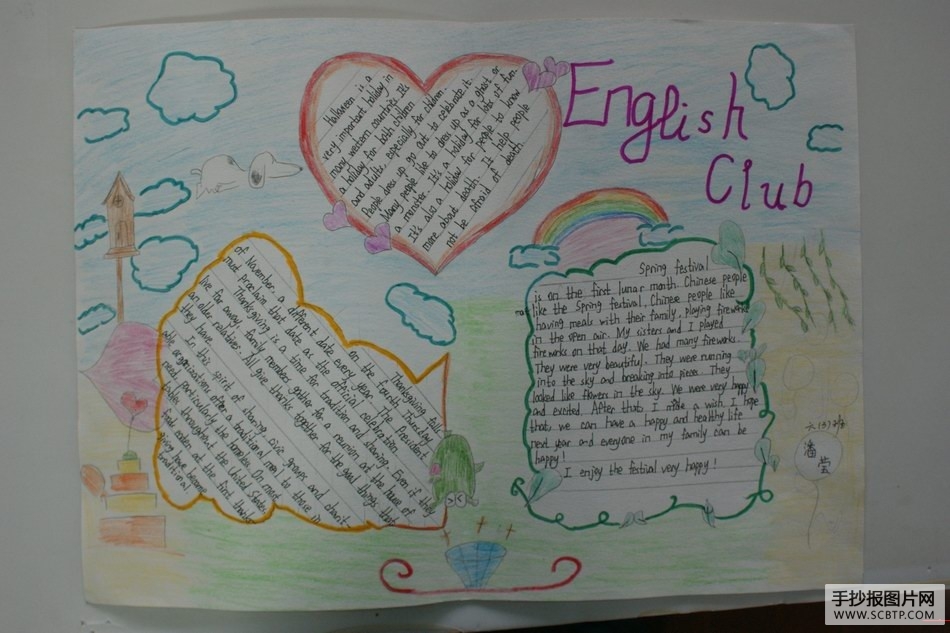 English
Club
Halloween is a
very important holiday in
many western countries. It's
a holiday for both children
and adults, especially for children.
People dress up go out to celebrate it.
Many people like to dress up as a ghost or
a monster. It's a holiday for lots of fun.
It's also a holiday for people to know
more about death. It help people
not be afraid of death.
Thanksgiving falls
on the fourth Thursday
of November, a different date every year. The President
must proclaim that date as the official celebration.
Thanksgiving is a time for tradition and sharing. Even if they
live far away, family members gather for a reunion at the house of
an older relative. All give thanks together for the good things that
they have.
In this spirit of sharing, civic groups and
organizations offer a traditional meal to those in
need, particularly the homeless. On most
tables throughout the United States,
eaten at the first
giving have become
traditional
Spring festival
is on the first lunar month. Chinese people
like the Spring festival. Chinese people like
having meals with their family, playing firework
in the open air. My sisters and I played
fireworks on that day. We had many fireworks.
They were very beautiful. They were running
into the sky and breaking into pieces. They
looked like flowers in the sky. We were very happy
and excited. After that, I made a wish. I hope
that we can have a happy and healthy life
next year and everyone in my family can be
happy!
I enjoy the festival very happy!
手抄报图片网
WWW.SCBTP.COM